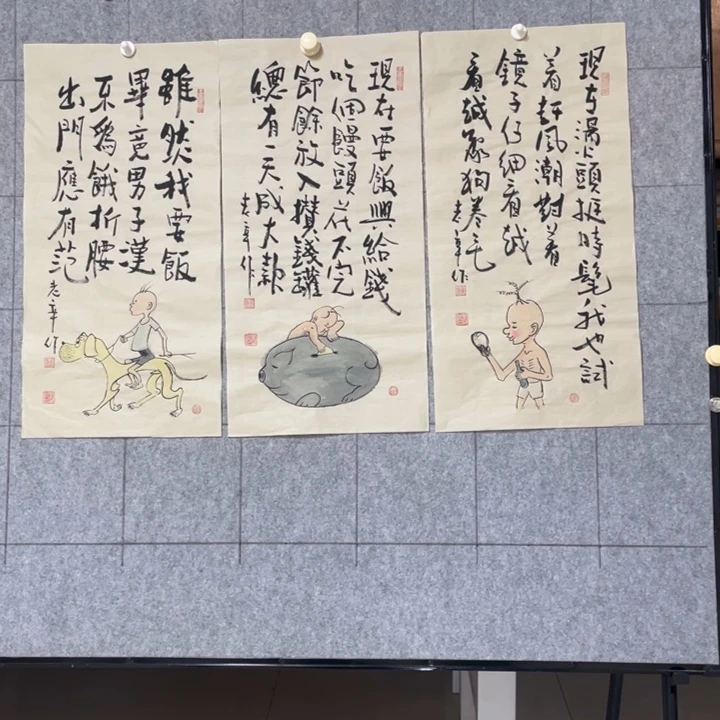 現在燙頭挺時髦我也試
着赶风潮對着
鏡子仔细看越
看越象狗卷毛
老辛作
現在要飯興給錢
吃個饅頭花不完
節餘放入攢錢罐
總有一天成大款
老辛作
雖然我要飯
畢竟男子漢
不爲餓折腰
出門應有范
老辛作